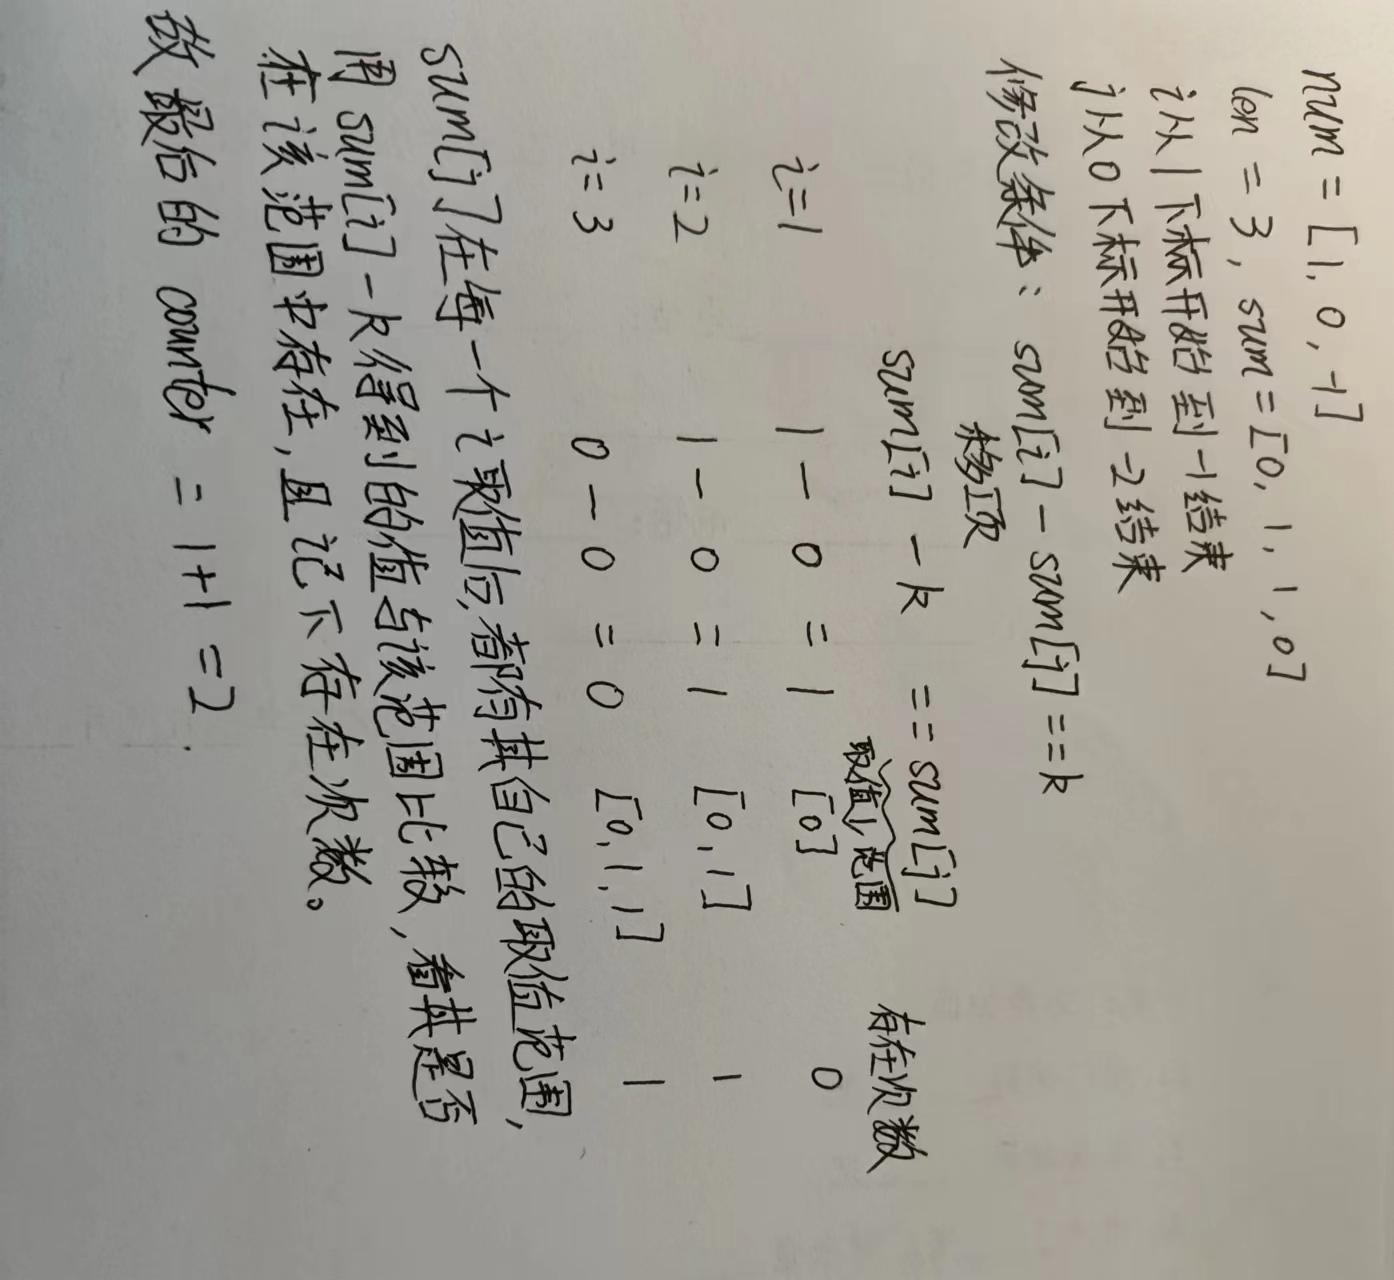 num = [1, 0, -1]
len = 3, sum = [0, 1, 1, 0]
i从1下标开始到-1结束
j从0下标开始到-2结束
修改条件: sum[i] - sum[j] == k
移项
sum[i] - k == sum[j] 存在次数
取值范围
i=1 1 - 0 = 1 [0] 0
i=2 1 - 0 = 1 [0, 1] 1
i=3 0 - 0 = 0 [0, 1, 1] 1
sum[j]在每一个i取值后,都有其自己的取值范围,
用sum[i]-k得到的值与该范围比较,看其是否
在该范围中存在,且记下存在次数。
故最后的 counter = 1+1 = 2.